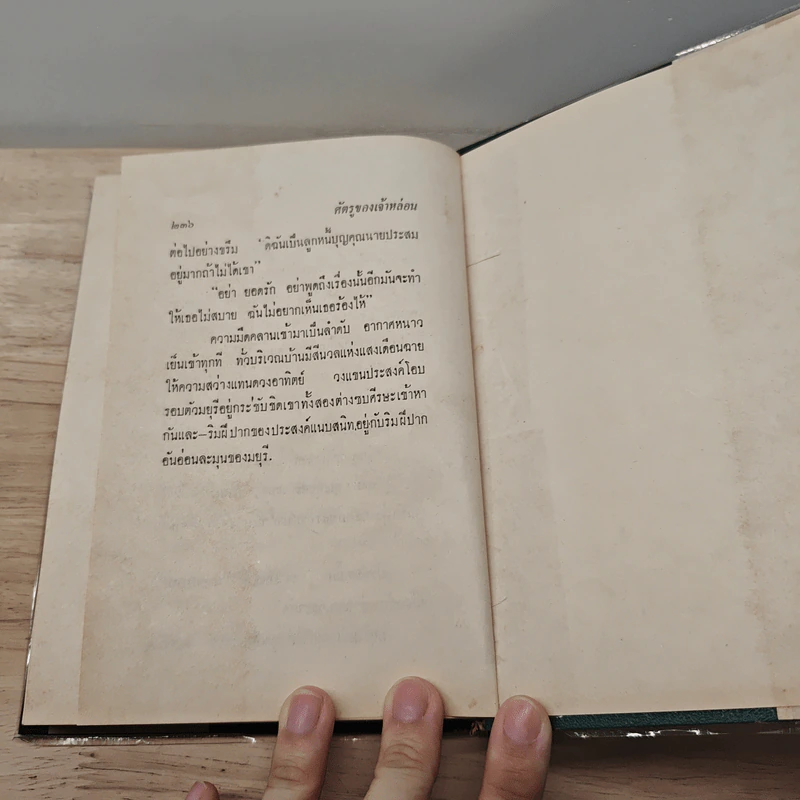 ๒๓๖
ศัตรูของเจ้าหล่อน
ต่อไปอย่างขรึม "ดิฉันเป็นลูกหนี้บุญคุณนายประสม
อยู่มากถ้าไม่ได้เขา"
"อย่า ยอดรัก อย่าพูดถึงเรื่องนั้นอีกมันจะทำ
ให้เธอไม่สบาย ฉันไม่อยากเห็นเธอร้องไห้"
ความมืดคลานเข้ามาเป็นลำดับ อากาศหนาว
เย็นเข้าทุกที ทั่วบริเวณบ้านมีสีนวลแห่งแสงเดือนฉาย
ให้ความสว่างแทนดวงอาทิตย์ วงแขนประสงค์โอบ
รอบตัวมยุรีอยู่กระชับชิดเขาทั้งสองต่างซบศีรษะเข้าหา
กันและ—ริมฝีปากของประสงค์แนบสนิทอยู่กับริมฝีปาก
อันอ่อนละมุนของมยุรี.